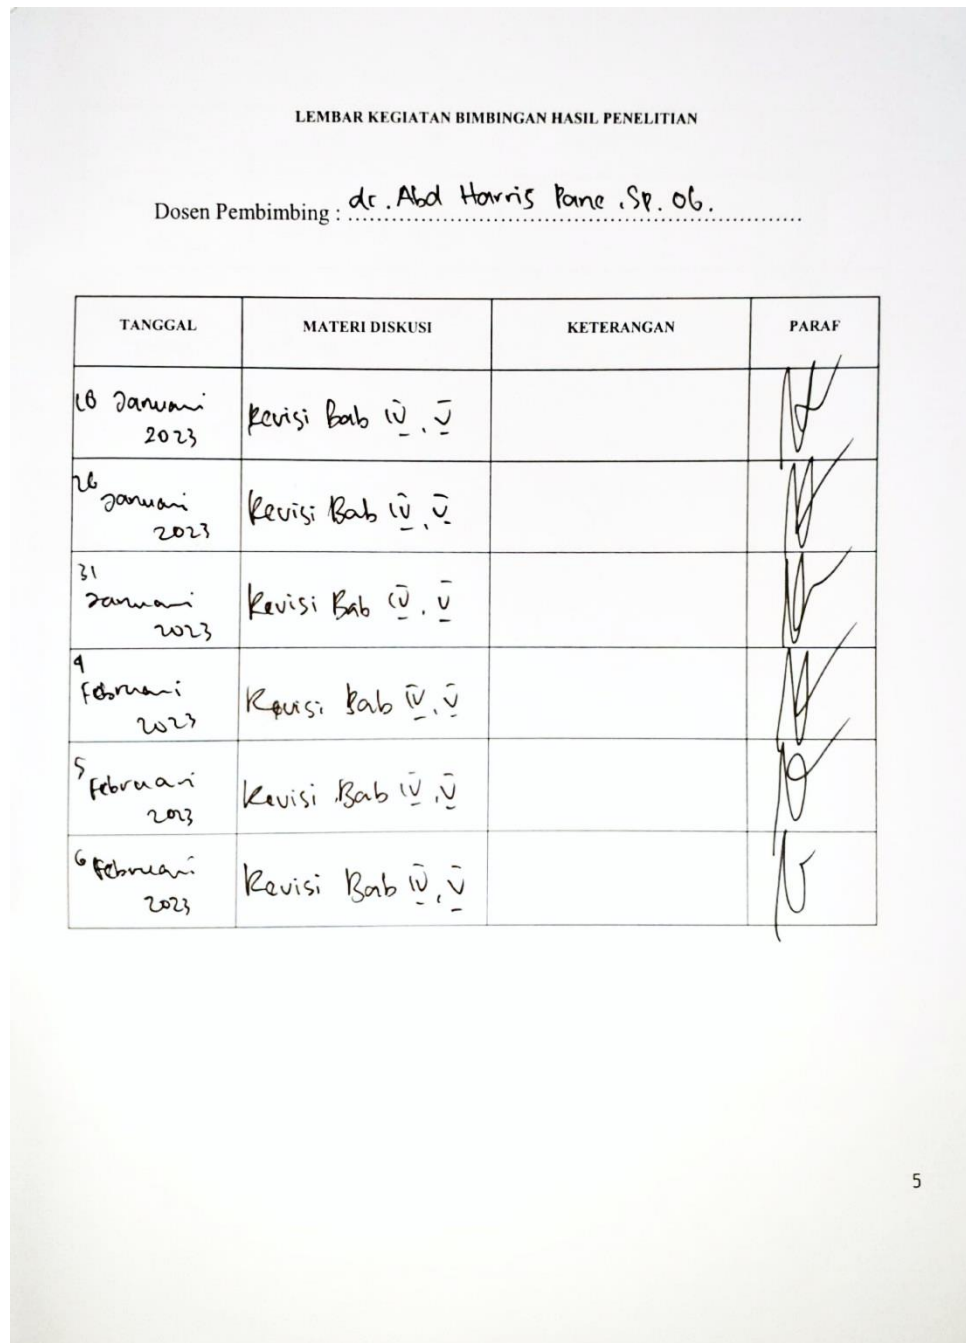 LEMBAR KEGIATAN BIMBINGAN HASIL PENELITIAN
Dosen Pembimbing : dr. Abd Harris Pane .Sp. OG.
TANGGAL MATERI DISKUSI KETERANGAN PARAF
Januari
2023
Revisi Bab IV, V
26
Januari
2023
Revisi Bab IV, V
31
Januari
2023
Revisi Bab IV, V
4
Februari
2023
Revisi Bab IV, V
5
Februari
2023
Revisi Bab IV, V
6 Februari
2023
Revisi Bab IV, V
5